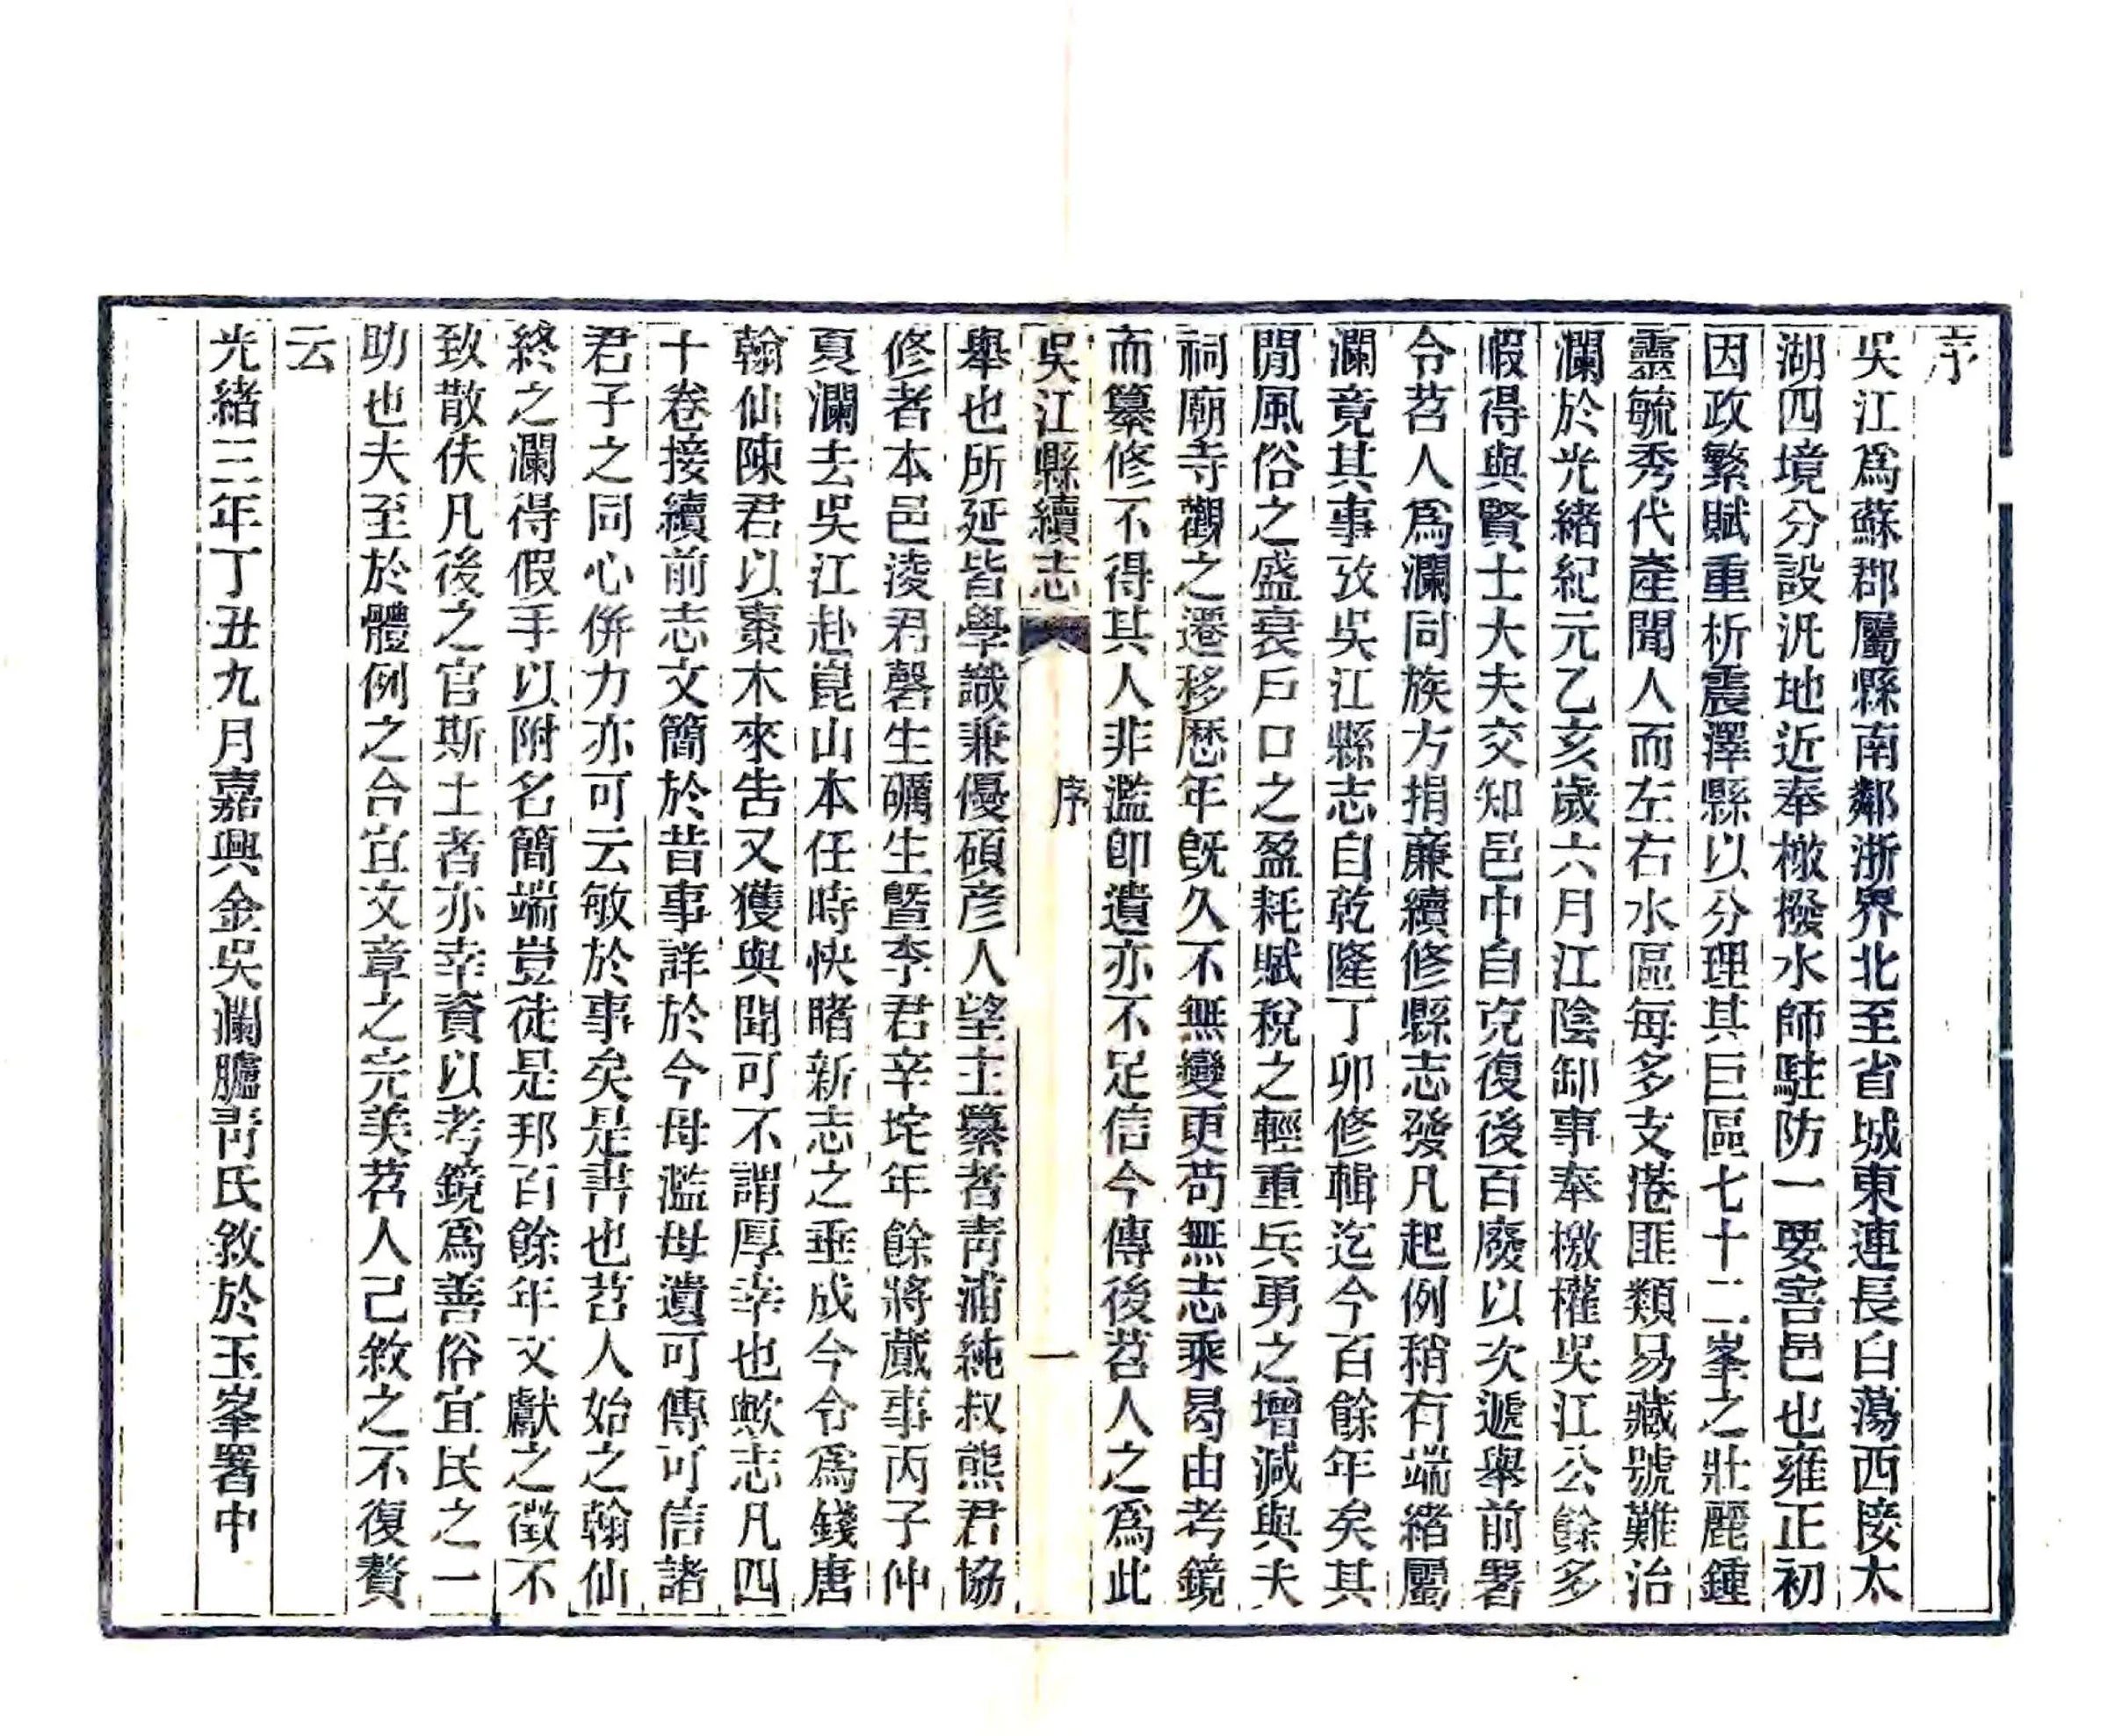 序
吳江爲蘇郡屬縣南鄰浙界北至省城東連長白蕩西接太
湖四境分設汛地近奉檄撥水師駐防一要害邑也雍正初
因政繁賦重析震澤縣以分理其巨區七十二峯之壯麗鍾
靈毓秀代產聞人而左右水區每多支港匪類易藏號難治
瀾於光緒紀元乙亥歲六月江陰卸事奉檄權吳江公餘多
暇得與賢士大夫交知邑中自克復後百廢以次遞舉前署
令苕人爲瀾同族方捐廉續修縣志發凡起例稍有端緒屬
瀾竟其事攷吳江縣志自乾隆丁卯修輯迄今百餘年矣其
閒風俗之盛衰戶口之盈耗賦稅之輕重兵勇之增減與夫
祠廟寺觀之遷移歷年旣久不無變更苟無志乘曷由考鏡
而纂修不得其人非濫卽遺亦不足信今傳後苕人之爲此
吳江縣續志
序
一
舉也所延皆學識兼優碩彥人望主纂者靑浦純叔熊君協
修者本邑淩君磬生礪生曁李君辛垞年餘將蕆事丙子仲
夏瀾去吳江赴崑山本任時快睹新志之垂成今令爲錢唐
翰仙陳君以棗木來告又獲與聞可不謂厚幸也歟志凡四
十卷接續前志文簡於昔事詳於今毋濫毋遺可傳可信諸
君子之同心倂力亦可云敏於事矣是書也苕人始之翰仙
終之瀾得假手以附名簡端豈徒是邦百餘年文獻之徵不
致散佚凡後之官斯土者亦幸資以考鏡爲善俗宜民之一
助也夫至於體例之合宜文章之完美苕人已敘之不復贅
云
光緒三年丁丑九月嘉興金吳瀾臚靑氏敘於玉峯署中